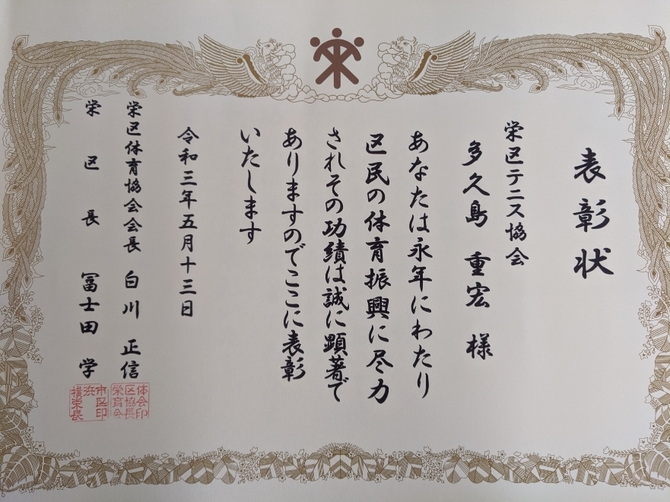 表彰状
栄区テニス協会
多久島 重宏 様
あなたは永年にわたり
区民の体育振興に尽力
されその功績は誠に顕著で
ありますのでここに表彰
いたします
令和三年五月十三日
栄区体育協会会長 白川 正信
栄区長 冨士田 学
体会印
区協長
栄育会
市区印
浜
横栄長